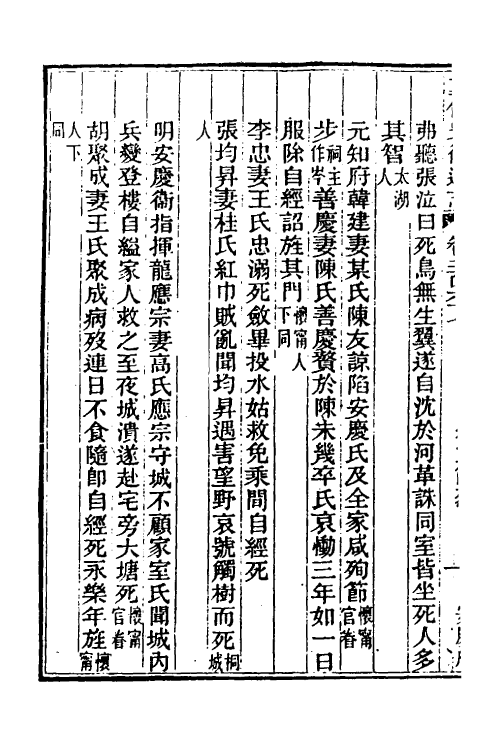 弗聽張泣曰死鳥無生翼遂自沈於河革誅同室皆坐死人多
其智太湖人
元知府韓建妻某氏陳友諒陷安慶氏及全家咸殉節懷甯官眷
步祠主作岑善慶妻陳氏善慶贅於陳未幾卒氏哀慟三年如一日
服除自經詔旌其門懷甯人下同
李忠妻王氏忠溺死斂畢投水姑救免乘間自經死
張均昇妻桂氏紅巾賊亂聞均昇遇害望野哀號觸樹而死桐城
人
明安慶衞指揮龍應宗妻高氏應宗守城不顧家室氏聞城內
兵變登樓自縊家人救之至夜城潰遂赴宅旁大塘死懷甯官眷
胡聚成妻王氏聚成病歿連日不食隨卽自經死永樂年旌懷甯
人下同